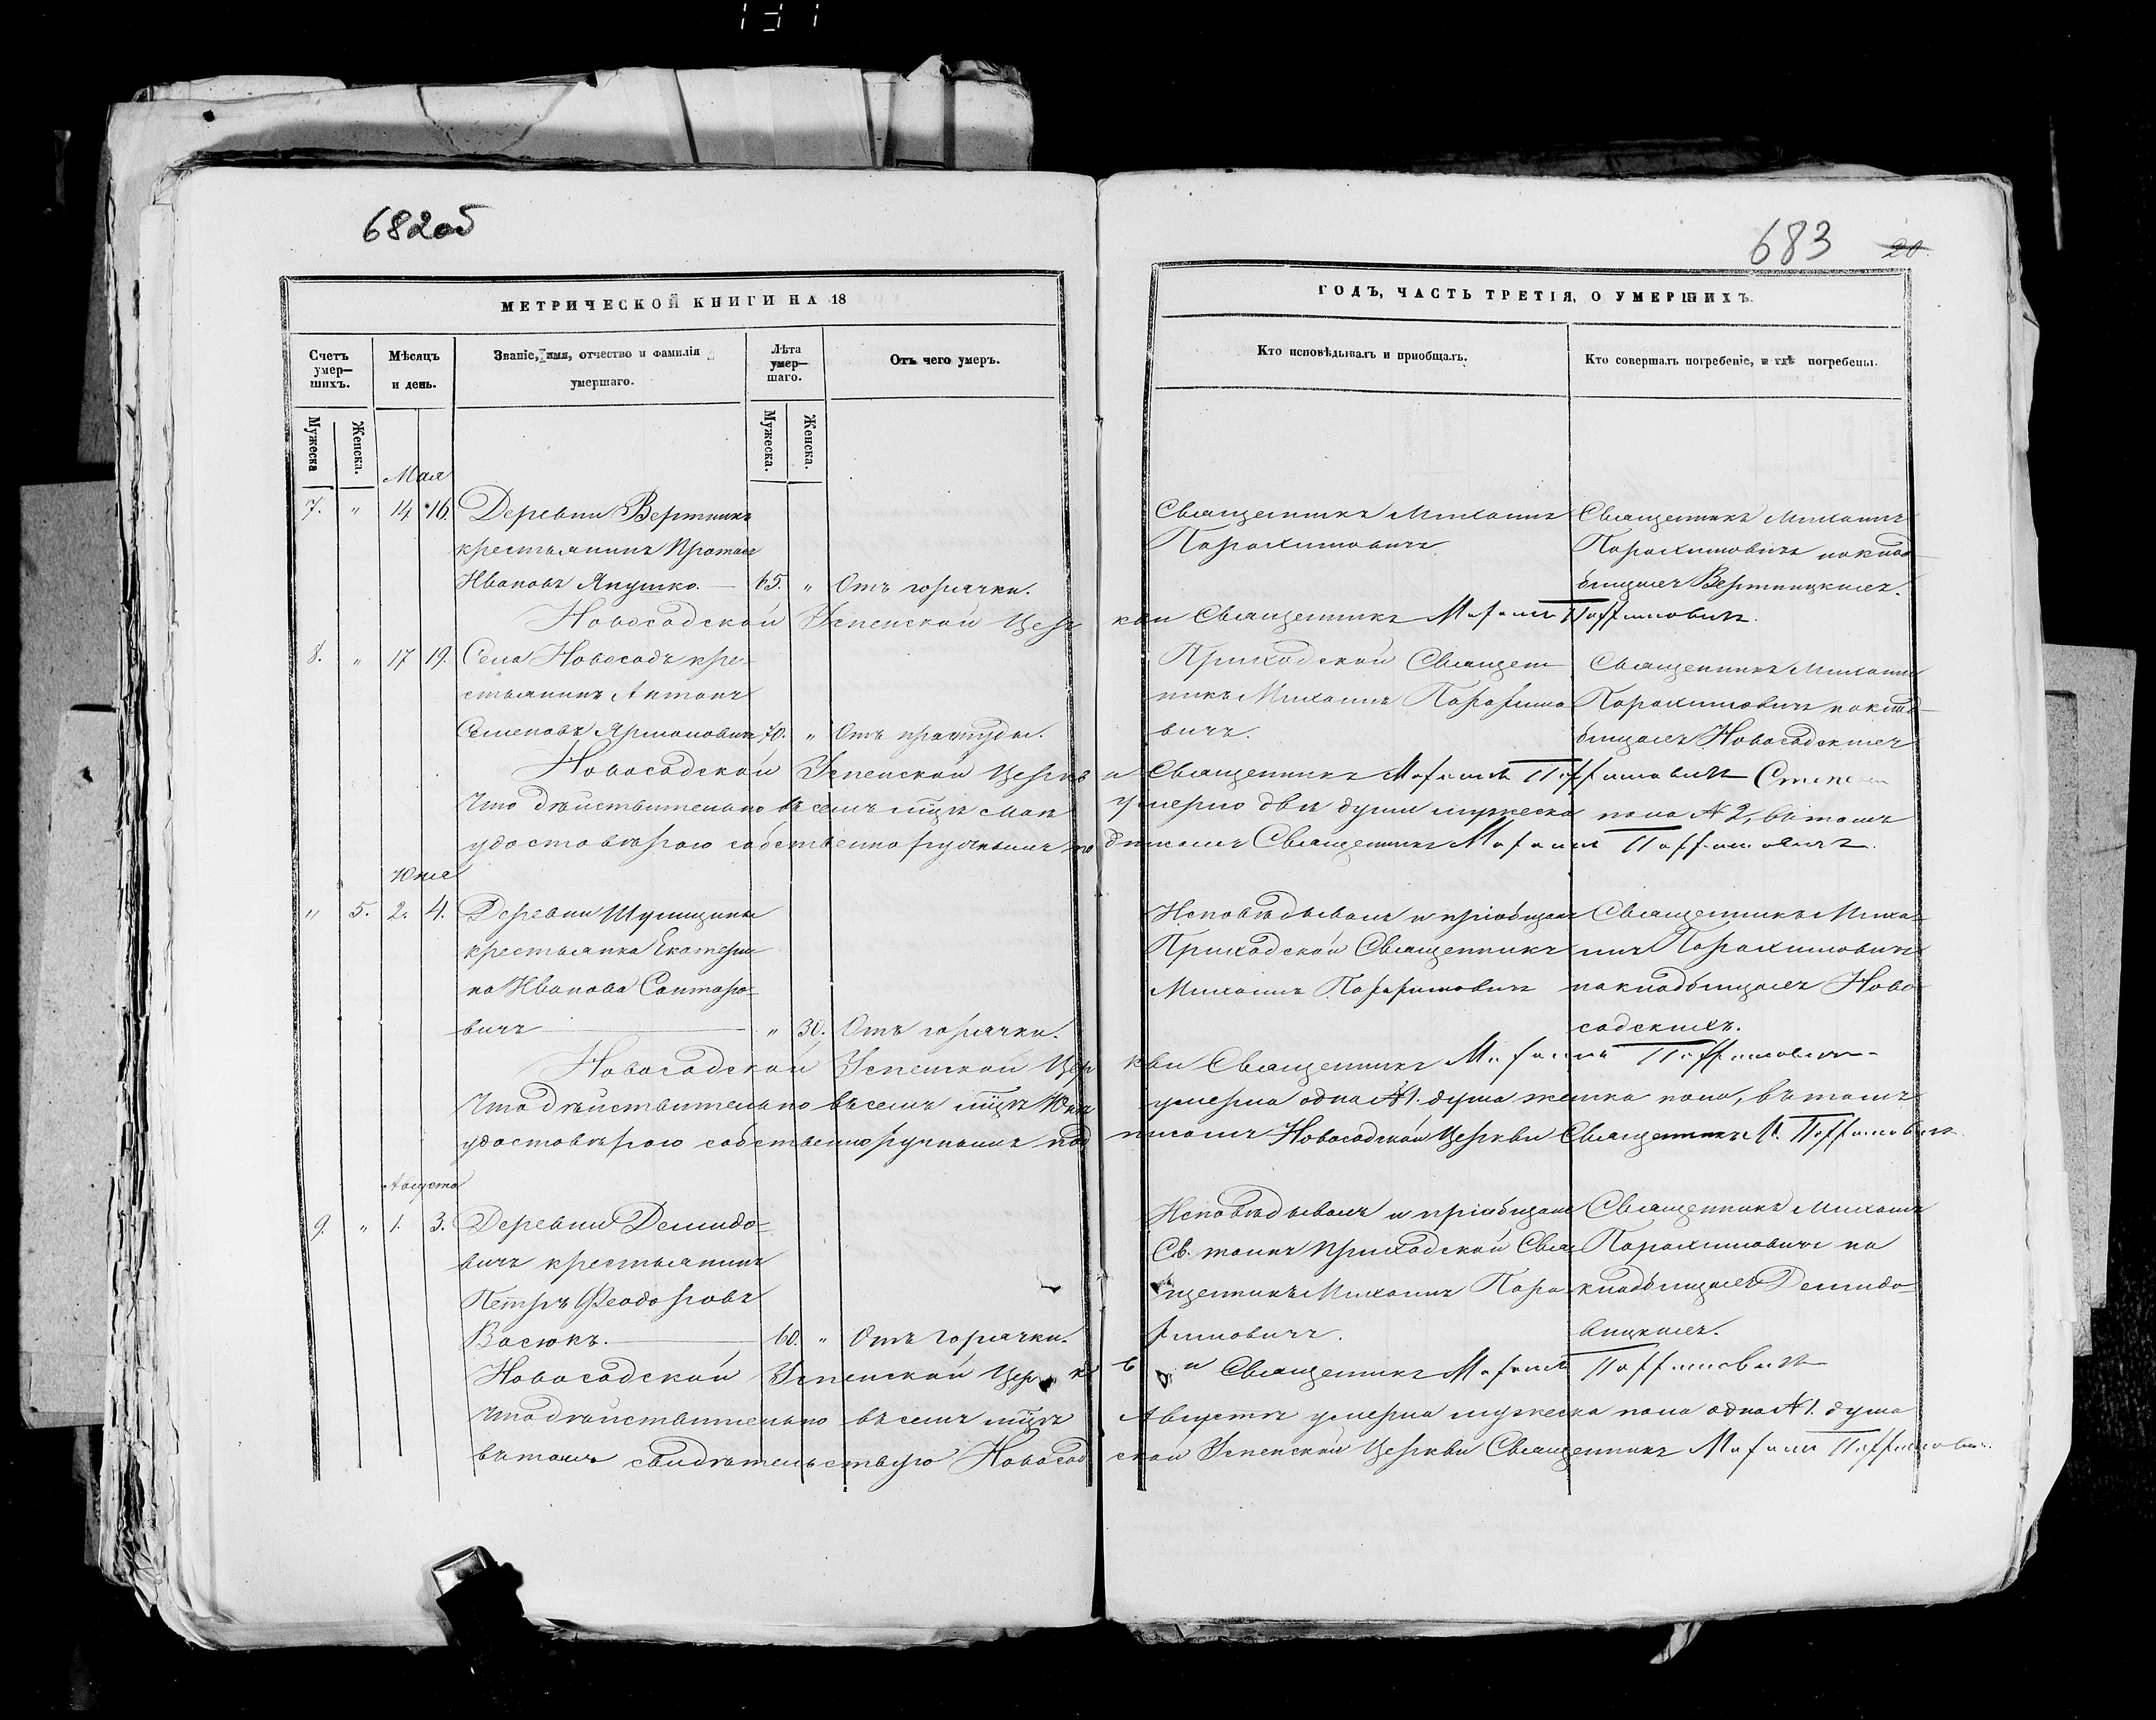 682об
683 20.
МЕТРИЧЕСКОЙ КНИГИ НА 18
ГОДЪ, ЧАСТЬ ТРЕТІЯ, О УМЕРШИХЪ.
Счетъ умер-шихъ.
Мѣсяцъ и день.
Званіе, имя, отчество и фамилія умершаго.
Лѣта умер-шаго.
Отъ чего умеръ.
Кто исповѣдывалъ и пріобщалъ.
Кто совершалъ погребеніе, и гдѣ погребены.
Мужеска
Женска.
Мужеска.
Женска.
Мая
7. " 14 16. Деревни Вертникъ
крестьянинъ
Ивановъ Янушко. — 65. " Отъ горячки.
Священникъ Михаилъ
Парахимовичъ
Священникъ Михаилъ
Парахимовичъ на клад-
бищахъ Вертницкихъ.
Новосадской Успенской Церкви Священникъ
8. " 17 19. Села Новосадъ кре-
стьянинъ Антонъ
Семеновъ Ярмоловичъ 70. " Отъ простуды.
Приходской Священ-
никъ Михаилъ Парафимо-
вичъ.
Священникъ Михаилъ
Парахимовичъ на клад-
бищахъ Новосадскихъ
Новосадской Успенской Церкви Священникъ
Что дѣйствительно въ семъ мцѣ маѣ умерло двѣ души мужеска пола № 2, въ томъ
удостовѣряю собственноручнымъ подписомъ Священникъ
Июня
" 5. 2. 4. Деревни
крестьянка Екатери-
на Иванова Сантаро-
вичъ — " 30. Отъ горячки.
Исповѣдывалъ и пріобщалъ
Приходской Священникъ
Михаилъ Парафимовичъ
Священникъ Миха-
илъ Парахимовичъ
на кладбищахъ Ново-
садскихъ.
Новосадской Успенской Церкви Священникъ
Что дѣйствительно въ семъ мцѣ Юнѣ умерла одна № 1. душа женска пола, въ томъ
удостовѣряю собственноручнымъ подписомъ Новосадской Церкви Священникъ М.
Августа
9. " 1. 3. Деревни Демидо-
вичъ крестьянинъ
Петръ Феодоровъ
Васюкъ. — 60. " Отъ горячки.
Исповѣдывалъ и пріобщалъ
Св. таинъ Приходской Свя-
щенникъ Михаилъ Пара-
фимовичъ.
Священникъ Михаилъ
Парахимовичъ на
кладбищахъ Демидо-
вицкихъ.
Новосадской Успенской Церкви Священникъ
Что дѣйствительно въ семъ мцѣ Августѣ умерла мужеска пола одна № 1. душа
въ томъ свидѣтельствую Новосадской Успенской Церкви Священникъ